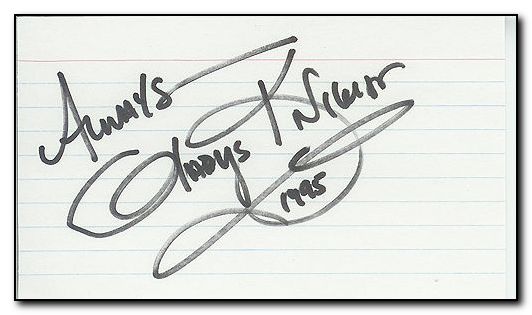 Always
Gladys Knight
1995